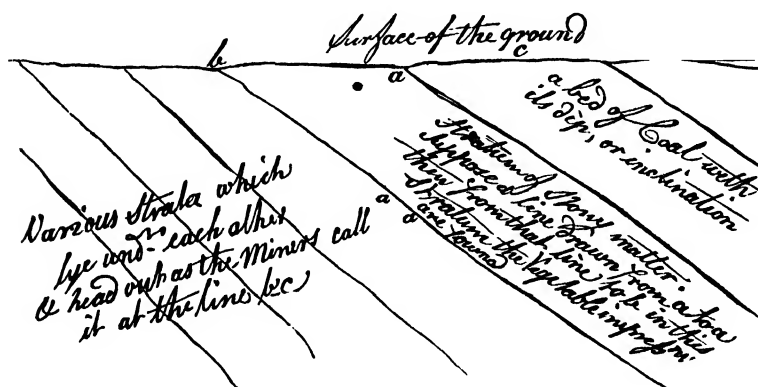 Surface of the ground
b
c
a
a bed of Coal with
its dip, or inclination
Stratum of stony matter.
suppose a line drawn from a to a
then from that line to be in this
Stratum the Vegetable impressn.
are found
a
a
Various Strata which
lye undr. each other
& head out as the Miners call
it at the line b c